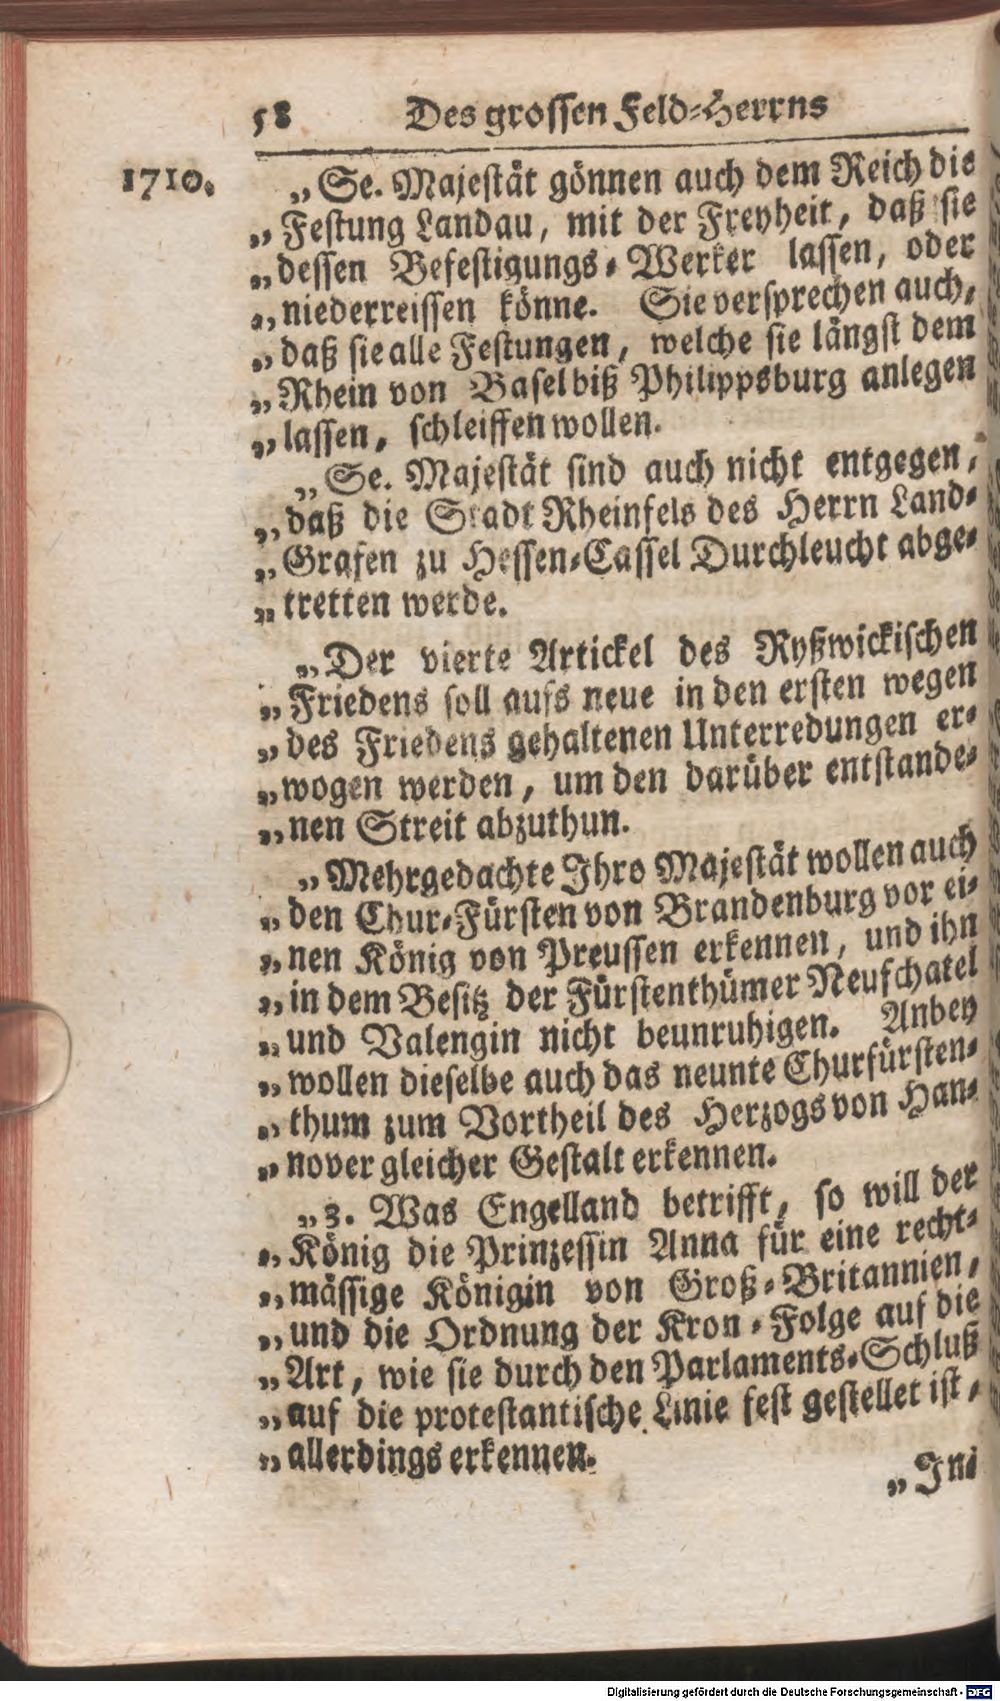 58 Des grossen Feld-Herrns
1710. „Se. Majestät gönnen auch dem Reich die
„Festung Landau, mit der Freyheit, daß sie
„dessen Befestigungs-Werker lassen, oder
„niederreissen könne. Sie versprechen auch,
„daß sie alle Festungen, welche sie längst dem
„Rhein von Basel biß Philippsburg anlegen
„lassen, schleiffen wollen.
„Se. Majestät sind auch nicht entgegen,
„daß die Stadt Rheinfels des Herrn Land-
„Grafen zu Hessen-Cassel Durchleucht abge-
„tretten werde.
„Der vierte Artickel des Ryßwickischen
„Friedens soll aufs neue in den ersten wegen
„des Friedens gehaltenen Unterredungen er-
„wogen werden, um den darüber entstande-
„nen Streit abzuthun.
„Mehrgedachte Ihro Majestät wollen auch
„den Chur-Fürsten von Brandenburg vor ei-
„nen König von Preussen erkennen, und ihn
„in dem Besitz der Fürstenthümer Neufchatel
„und Valengin nicht beunruhigen. Anbey
„wollen dieselbe auch das neunte Churfürsten-
„thum zum Vortheil des Herzogs von Han-
„nover gleicher Gestalt erkennen.
„3. Was Engelland betrifft, so will der
„König die Prinzessin Anna für eine recht-
„mässige Königin von Groß-Britannien,
„und die Ordnung der Kron-Folge auf die
„Art, wie sie durch den Parlaments-Schluß
„auf die protestantische Linie fest gestellet ist,
„allerdings erkennen.
„In
Digitalisierung gefördert durch die Deutsche Forschungsgemeinschaft - DFG